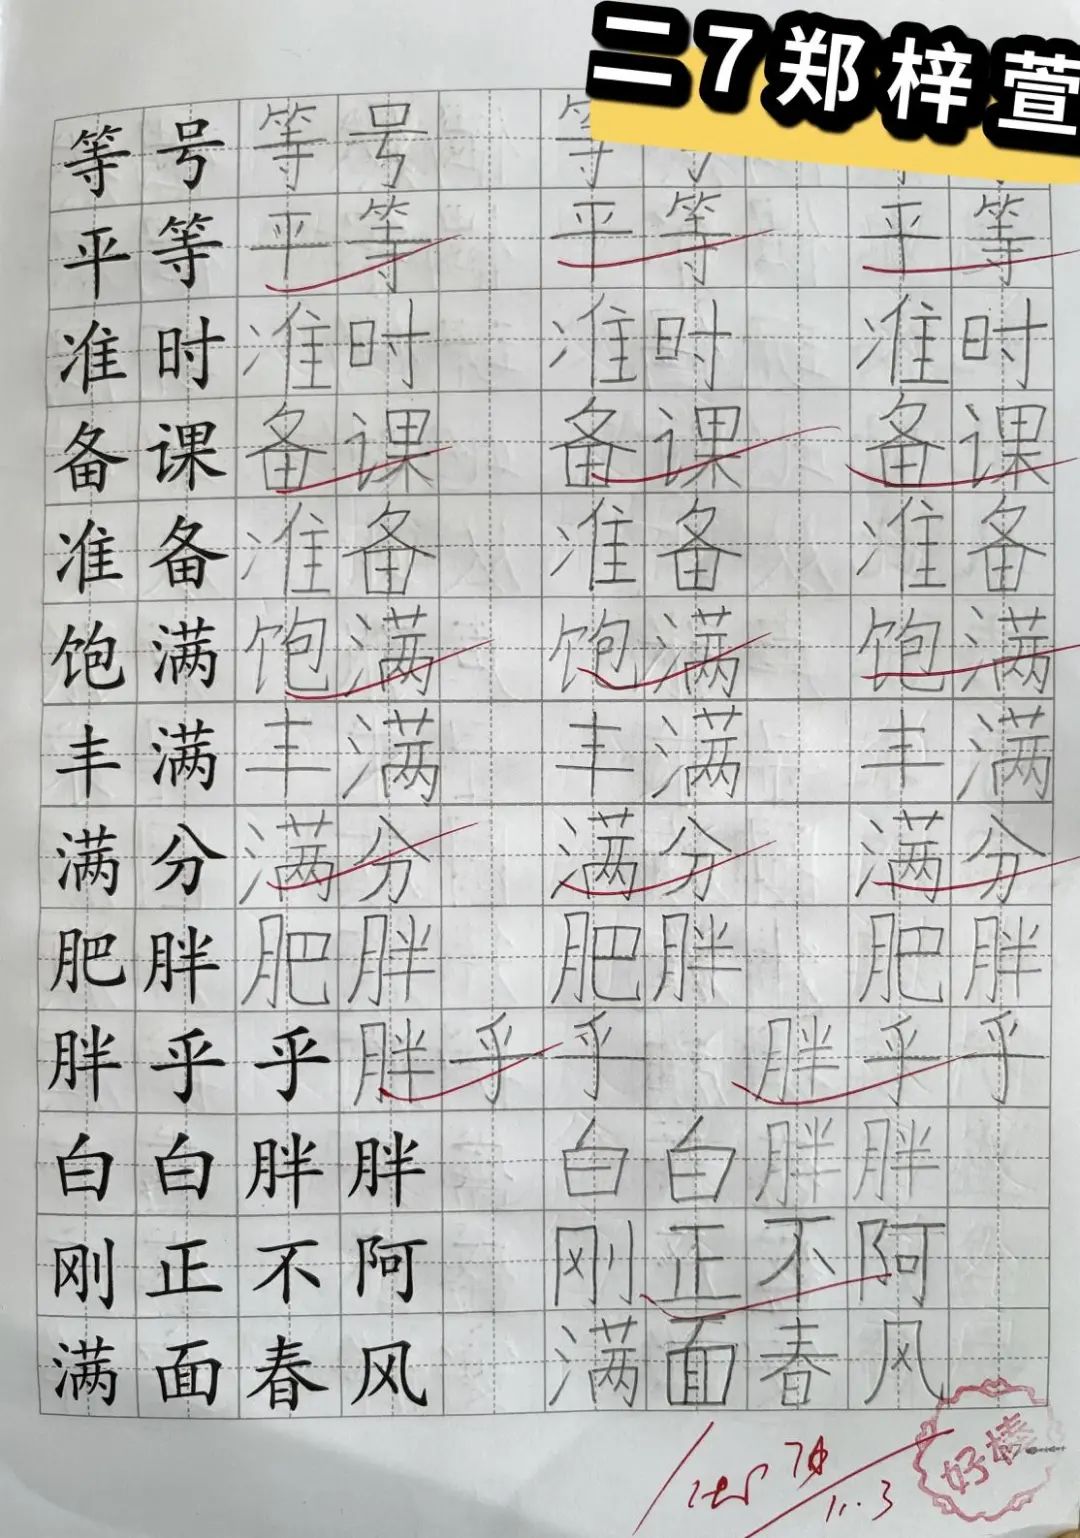 二7郑梓萱
等号 等号 等号
平等 平等 平等 平等
准时 准时 准时 准时
备课 备课 备课 备课
准备 准备 准备 准备
饱满 饱满 饱满 饱满
丰满 丰满 丰满 丰满
满分 满分 满分 满分
肥胖 肥胖 肥胖 肥胖
胖乎乎 胖乎乎 胖乎乎
白白胖胖 白白胖胖
刚正不阿 刚正不阿
满面春风 满面春风
11.3
好棒